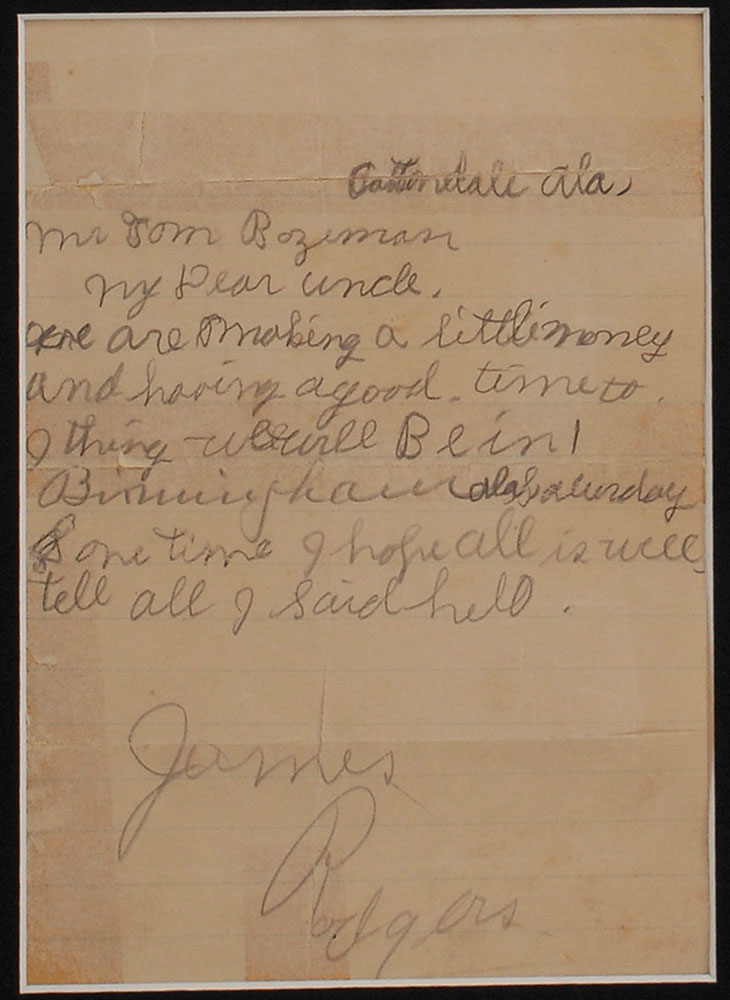 Ala,
Mr Tom Bozeman
My Dear uncle.
we are making a little money
and having a good time to.
I thing we will Be in
Birmingham ala Saturday
Some time I hope all is well
tell all I said hello.
James
Rodgers